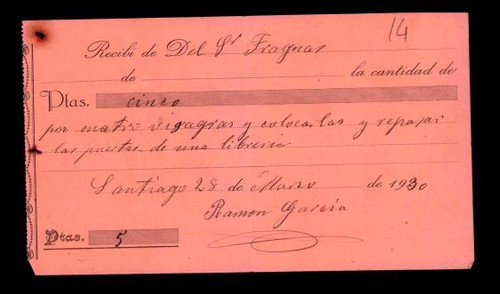 14
Recibí de Del Sr Fraguas
de la cantidad de
Ptas. cinco
por cuatro visagras y colocarlas y repasar
las puertas de una libreria
Santiago 28 de Marzo de 1930
Ramon García
Ptas. 5